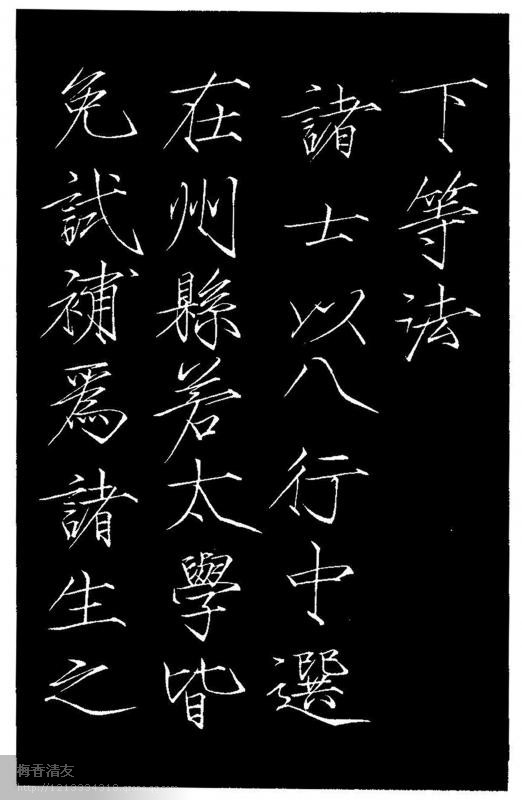 下等法
諸士以八行中選
在州縣若太學皆
免試補爲諸生之
梅香清友